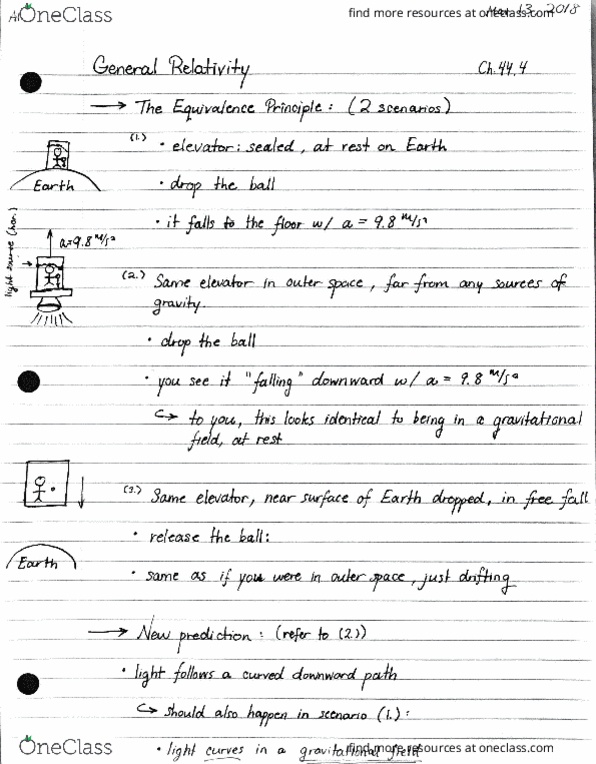 OneClass
find more resources at oneclass.com
13 2018
General Relativity
Ch.44.4
→ The Equivalence Principle: (2 scenarios)
(1.) • elevator: sealed, at rest on Earth
Earth
• drop the ball
• it falls to the floor w/ a = 9.8 m/s²
a=9.8 m/s²
light source (hor.)
(2.) Same elevator in outer space, far from any sources of
gravity.
• drop the ball
• you see it "falling" downward w/ a = 9.8 m/s²
↪ to you, this looks identical to being in a gravitational
field, at rest
(3.) Same elevator, near surface of Earth dropped, in free fall
• release the ball:
Earth
• same as if you were in outer space, just drifting
→ New prediction: (refer to (2.))
• light follows a curved downward path
↪ should also happen in scenario (1.):
• light curves in a gravitational field
OneClass
find more resources at oneclass.com